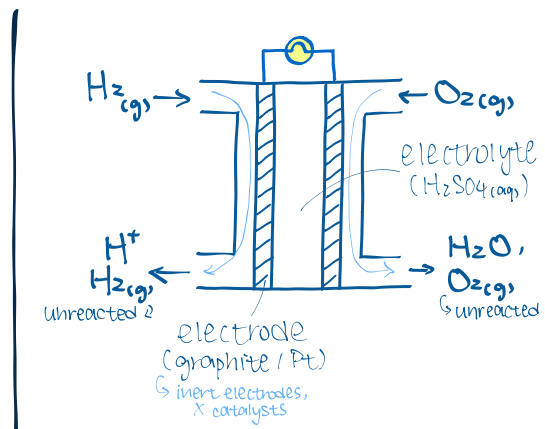 H2(g)
O2(g)
electrolyte
(H2SO4(aq))
H+
H2(g)
unreacted
H2O,
O2(g)
↳ unreacted
electrode
(graphite / Pt)
↳ inert electrodes,
x catalysts